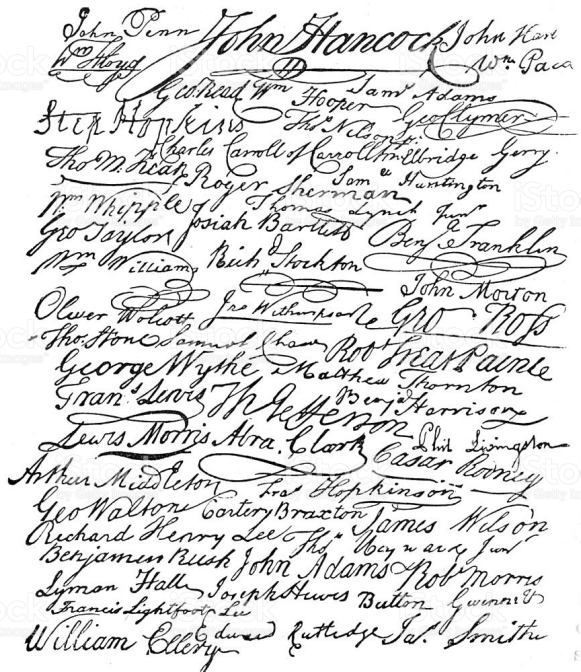 John Penn John Hancock John Hart
Wm Floyd Wm Paca
Geo Read Wm Hooper Saml Adams
Step Hopkins Thos Nelson jr. Geo Clymer
Charles Carroll of Carrollton Elbridge Gerry.
Tho M: Kean Roger Sherman Saml Huntington
Wm Whipple Thomas Lynch Junr
Geo Taylor Josiah Bartlett Benj Franklin
Wm Williams Richd Stockton
John Morton
Oliver Wolcott Jno Witherspoon Geo Ross
Thos Stone Samuel Chase Robt Treat Paine
George Wythe Matthew Thornton
Frans Lewis Th Jefferson Benj Harrison
Lewis Morris Abra. Clark Phil Livingston
Cæsar Rodney
Arthur Middleton Fras Hopkinson
Geo Walton Carter Braxton James Wilson
Richard Henry Lee Thos Heyward Junr
Benjamin Rush John Adams Robt Morris
Lyman Hall Joseph Hewes Button Gwinnett
Francis Lightfoot Lee
William Ellery Edward Rutledge Jas. Smith
iStock